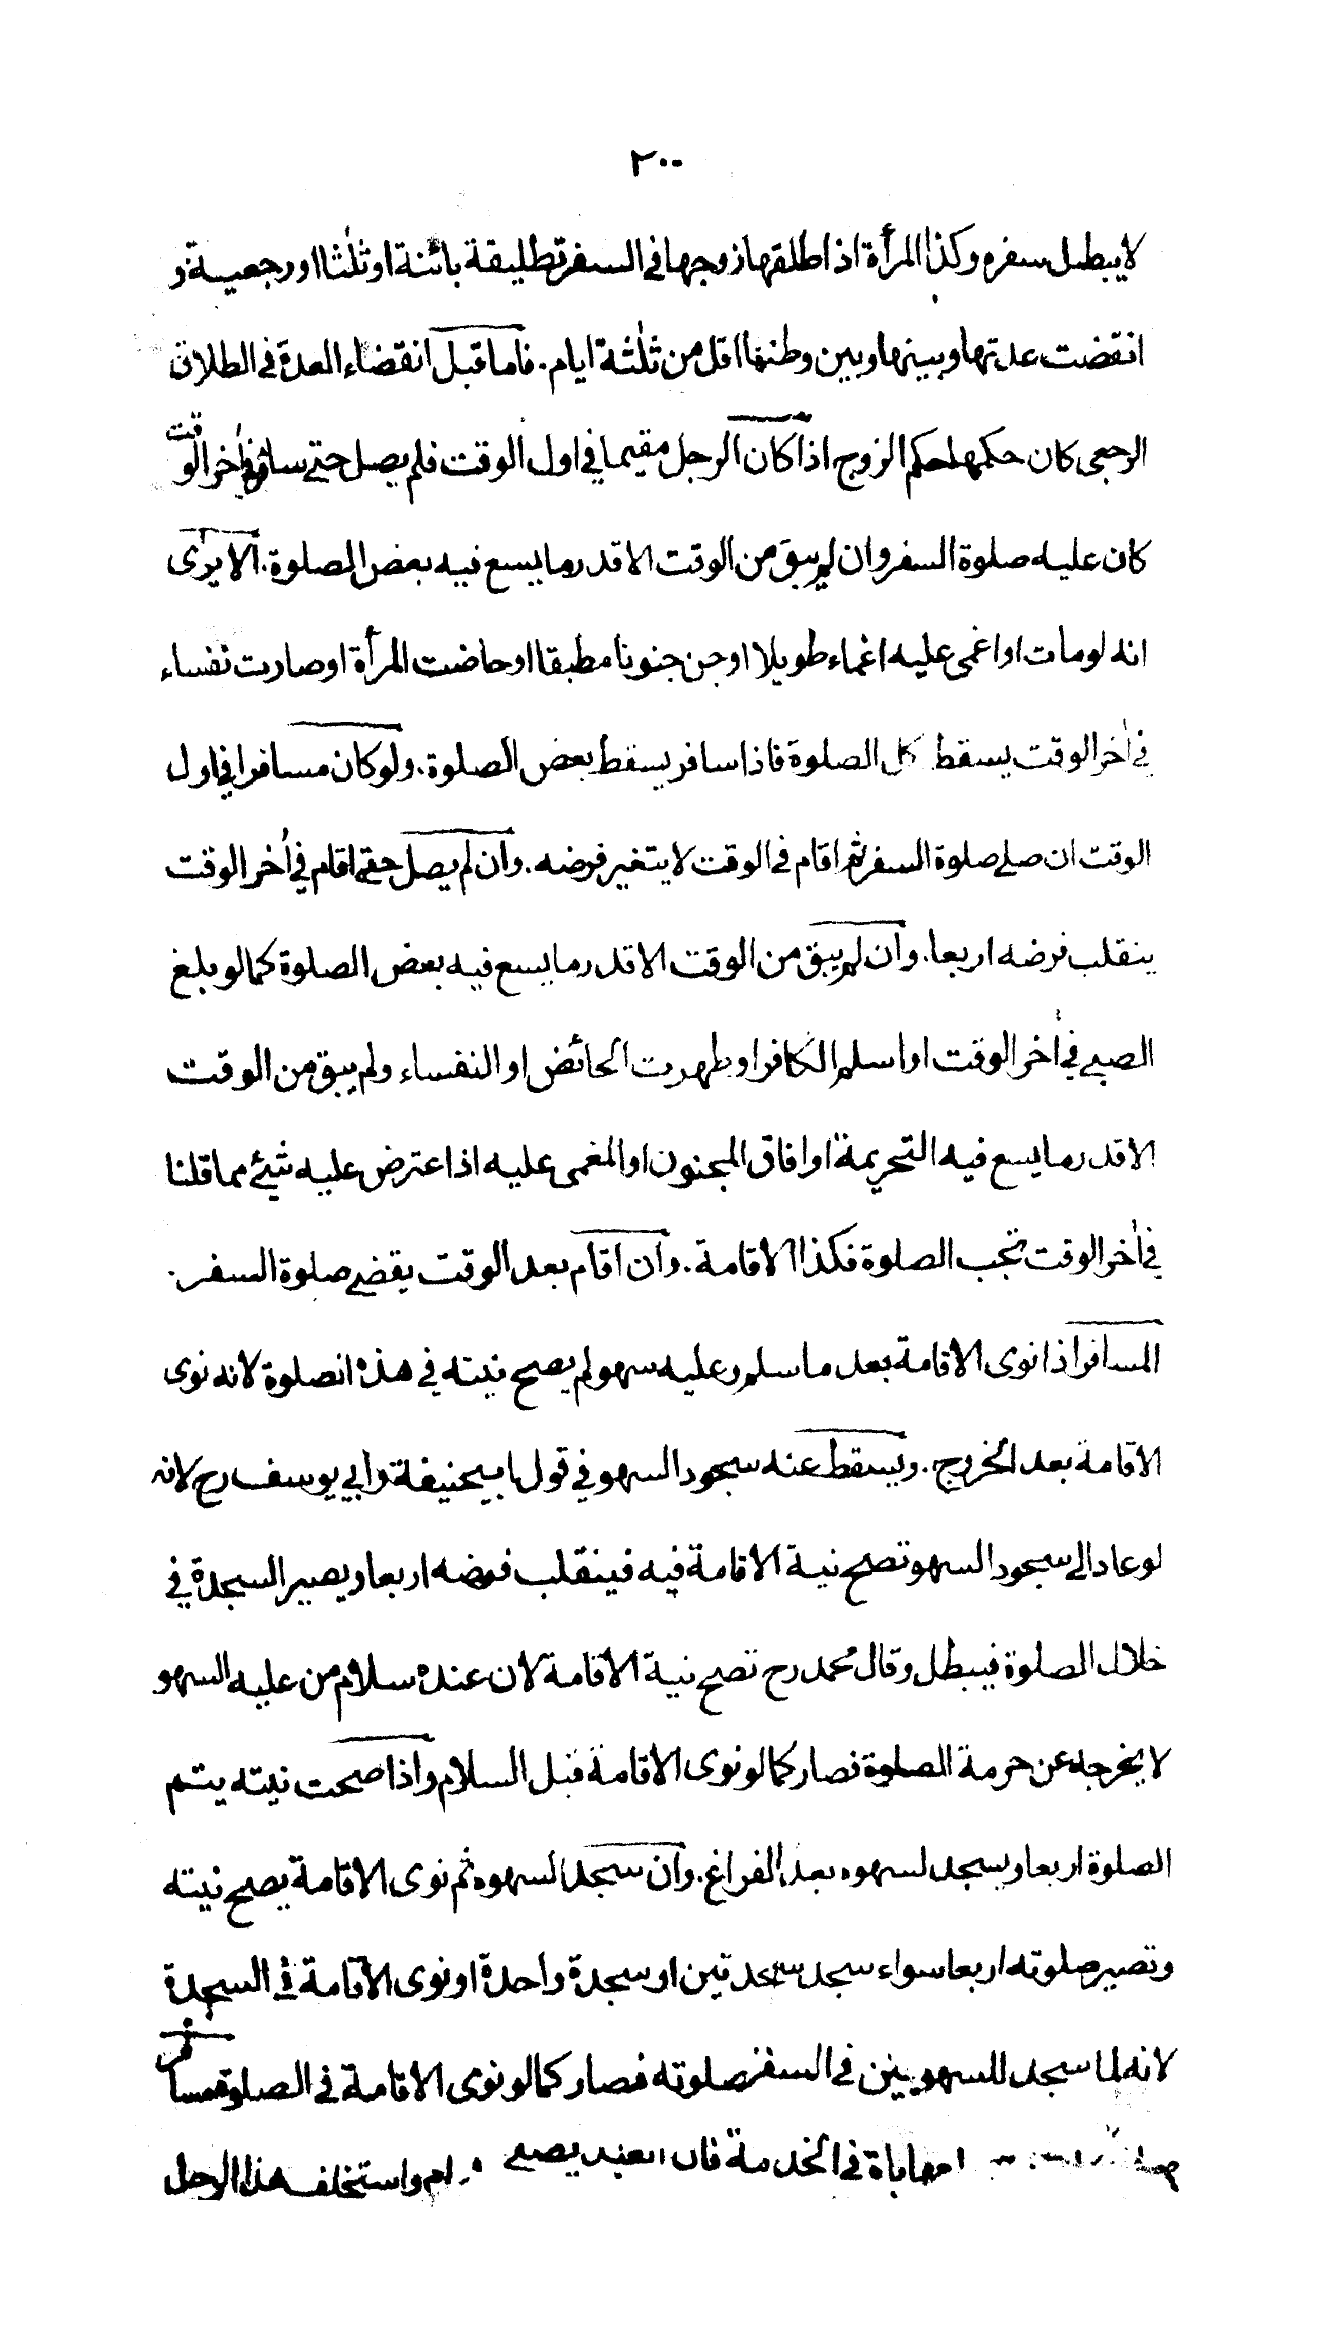 ٢٠٠
لا يبطل سفره وكذا المرأة اذا طلقها زوجها في السفر تطليقة بائنة او ثلٰثا او رجعية و
انقضت عدتها وبينها وبين وطنها اقل من ثلٰثة ايام . فاما قبل انقضاء العدة في الطلاق
الرجعى كان حكمها حكم الزوج اذا كان الرجل مقيما في اول الوقت فلم يصل حتى سافر في اٰخر الوقت
كان عليه صلوة السفر وان لم يبق من الوقت الا قدر ما يسع فيه بعض الصلوة . الا يرٰى
انه لو مات او اغمى عليه اغماء طويلا او جن جنونا مطبقا او حاضت المرأة او صارت نفساء
في اٰخر الوقت يسقط كل الصلوة فاذا سافر يسقط بعض الصلوة . ولو كان مسافرا في اول
الوقت ان صلى صلوة السفر ثم اقام في الوقت لا يتغير فرضه . وان لم يصل حتى اقام في اٰخر الوقت
ينقلب فرضه اربعا . وان لم يبق من الوقت الا قدر ما يسع فيه بعض الصلوة كما لو بلغ
الصبى في اٰخر الوقت او اسلم الكافر او طهرت الحائض او النفساء ولم يبق من الوقت
الا قدر ما يسع فيه التحريمة او افاق المجنون او المغمى عليه اذا اعترض عليه شيئ مما قلنا
في اٰخر الوقت تجب الصلوة فكذا الاقامة . وان اقام بعد الوقت يقضى صلوة السفر .
المسافر اذا نوى الاقامة بعد ما سلم وعليه سهو لم يصح نيته في هذه الصلوة لانه نوى
الاقامة بعد الخروج . ويسقط عنه سجود السهو في قول ابيحنيفة وابي يوسف رح لانه
لو عاد الى سجود السهو تصح نية الاقامة فيه فينقلب فرضه اربعا ويصير السجدة في
خلال الصلوة فيبطل وقال محمد رح تصح نية الاقامة لان عنده سلام من عليه السهو
لا يخرجه عن حرمة الصلوة فصار كما لو نوى الاقامة قبل السلام واذا صحت نيته يتم
الصلوة اربعا ويسجد لسهوه بعد الفراغ . وان سجد لسهوه ثم نوى الاقامة يصح نيته
وتصير صلوته اربعا سواء سجد سجدتين او سجدة واحدة او نوى الاقامة في السجدة
لانه لما سجد للسهو بين في السفر صلوته فصار كما لو نوى الاقامة في الصلوة مسافر
مهاياة في الخدمة فان العبد يصلى واستخلف هذا الرجل